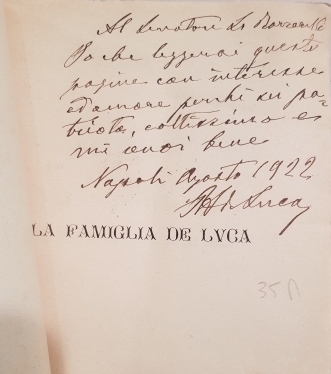 Al Senatore
So che leggerai queste
pagine con interesse
ed amore perchè sei pa-
triota, coltissimo e
mi vuoi bene
Napoli Agosto 1922
de Luca
LA FAMIGLIA DE LVCA
35